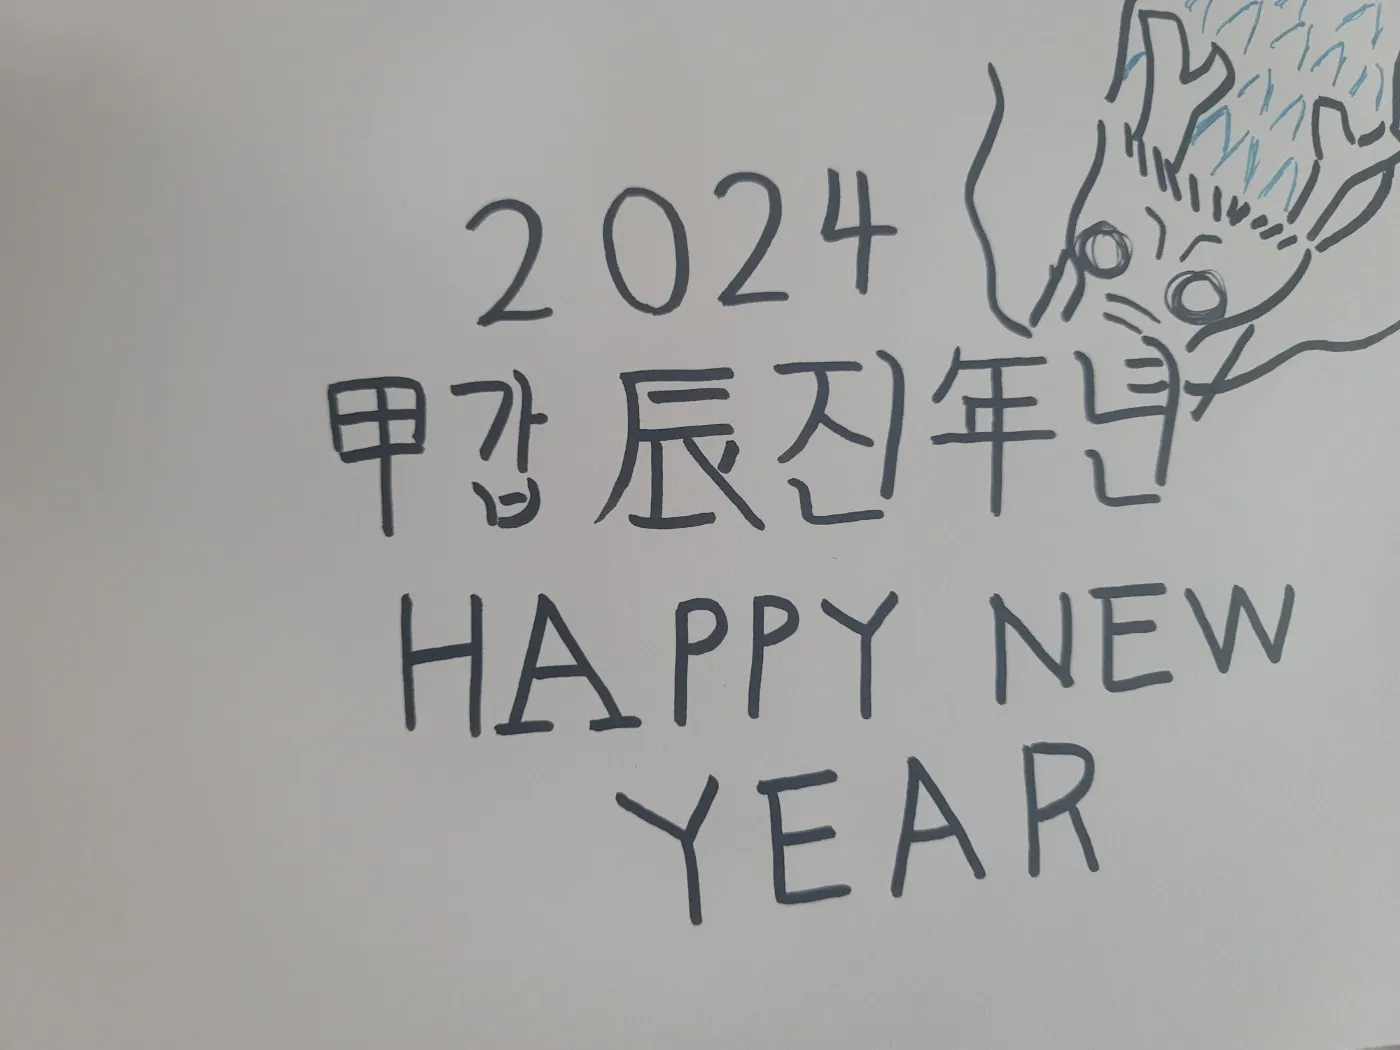 2024
甲갑 辰진年년
HAPPY NEW
YEAR